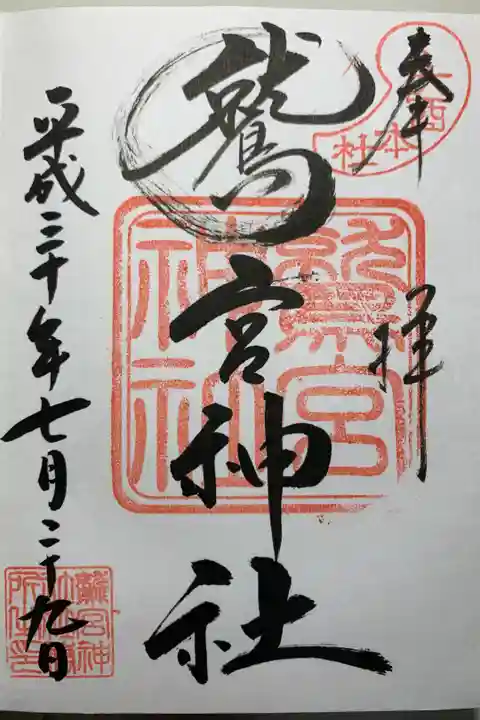 奉拝
酉
本社
鷲宮神社
鷲宮
神社
平成三十年七月二十九日
鷲宮神